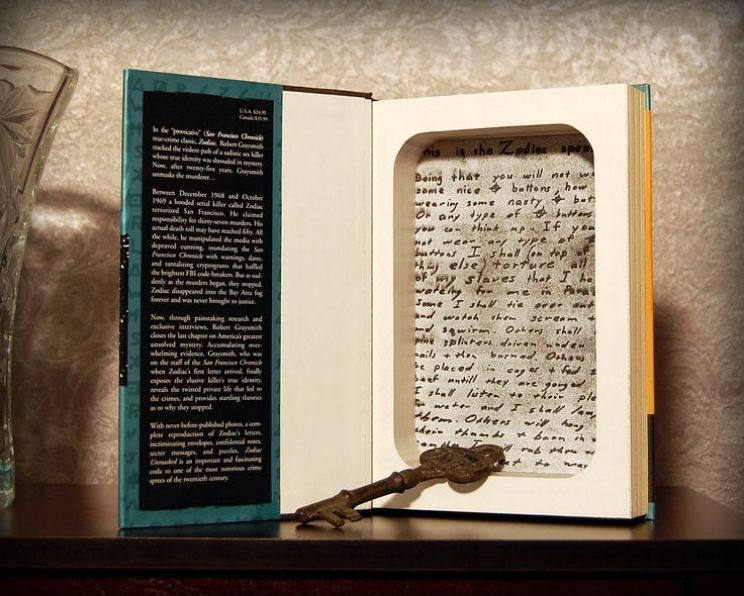 U.S.A. $24.95
Canada $35.99
In the "provocative" (San Francisco Chronicle)
true-crime classic, Zodiac, Robert Graysmith
tracked the violent path of a sadistic sex killer
whose true identity was shrouded in mystery.
Now, after twenty-five years, Graysmith
unmasks the murderer...
Between December 1968 and October
1969 a hooded serial killer called Zodiac
terrorized San Francisco. He claimed
responsibility for thirty-seven murders. His
actual death toll may have reached fifty. All
the while, he manipulated the media with
depraved cunning, inundating the San
Francisco Chronicle with warnings, dares,
and tantalizing cryptograms that baffled
the brightest FBI code-breakers. But as sud-
denly as the murders began, they stopped.
Zodiac disappeared into the Bay Area fog
forever and was never brought to justice.
Now, through painstaking research and
exclusive interviews, Robert Graysmith
closes the last chapter on America's greatest
unsolved mystery. Accumulating over-
whelming evidence, Graysmith, who was
on the staff of the San Francisco Chronicle
when Zodiac's first letter arrived, finally
exposes the elusive killer's true identity,
reveals the twisted private life that led to
the crimes, and provides startling theories
as to why they stopped.
With never-before-published photos, a com-
plete reproduction of Zodiac's letters,
incriminating envelopes, confidential notes,
secret messages, and puzzles, Zodiac
Unmasked is an important and fascinating
coda to one of the most notorious crime
sprees of the twentieth century.
his is the Zodiac spea
Being that you will not w
some nice ⌖ buttons, how
wearing some nasty ⌖ but
Or any type of ⌖ buttons
you can think up. If you
not wear any type of ⌖
buttons I shall (on top of
thing else) torture all
of my slaves that I ha
wateing for me in Para
Some I shall tie over ant
and watch them scream +
and squirm. Others shall
pine splinters driven under
nails + then burned. Others
be placed in cages + fed s
beef untill they are gorged
I shall listen to their ple
water and I shall laug
them. Others will hang
their thumbs + burn in
rub them
to war